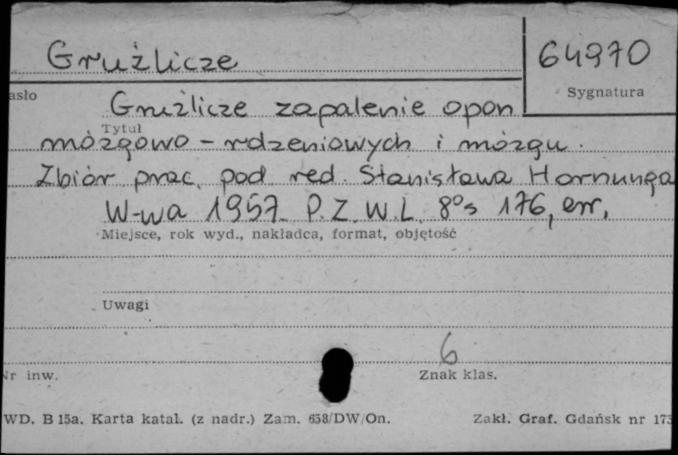 Gruźlicze
64970
asło
Sygnatura
Gruźlicze zapalenie opon
Tytuł
mózgowo - rdzeniowych i mózgu.
Zbiór prac, pod red. Stanisława Hornunga
W-wa 1957. P.Z.W.L. 8°s 176, err.
Miejsce, rok wyd., nakładca, format, objętość
Uwagi
6
Nr inw.
Znak klas.
WD. B 15a. Karta katal. (z nadr.) Zam. 658/DW/On.
Zakł. Graf. Gdańsk nr 175